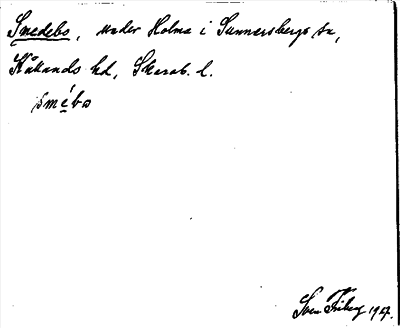 Smedebo, under Holma i Sunnersbergs sn,
Kållands hd, Skarab. l.
smébo
Sven Friberg 1927.